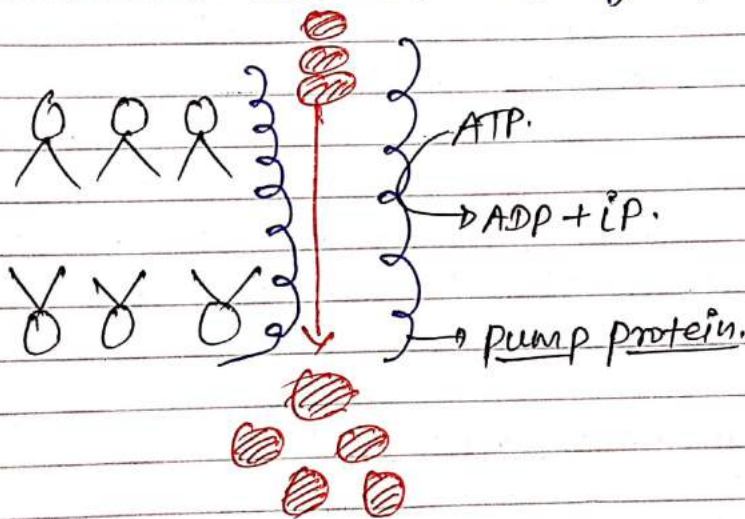 ATP.
ADP + iP.
pump protein.